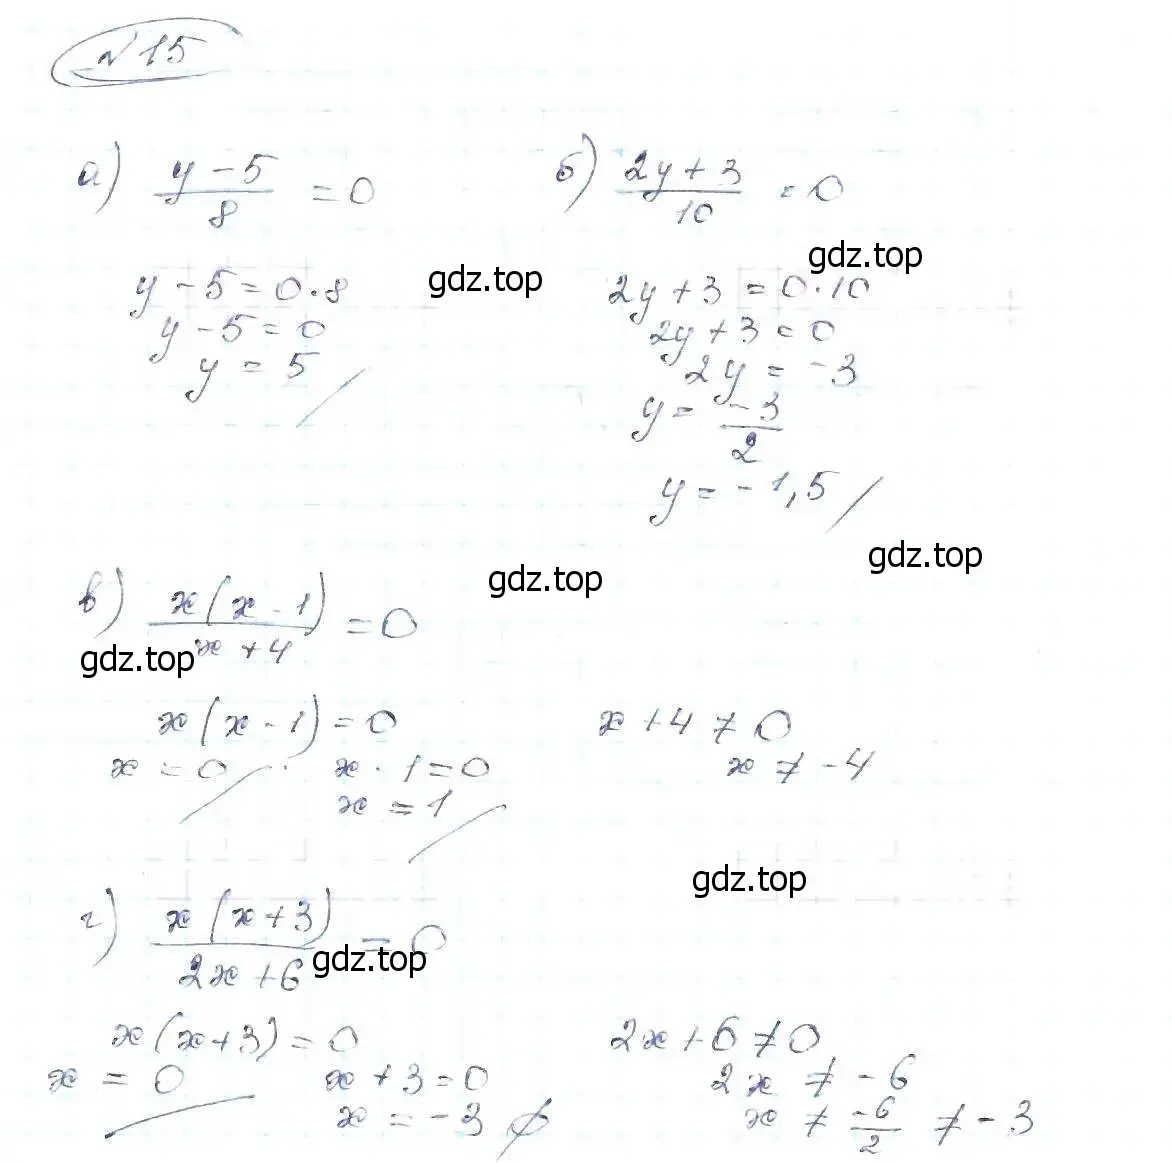 №15
а) (y-5)/8 = 0
y-5=0·8
y-5=0
y=5
б) (2y+3)/10 = 0
2y+3=0·10
2y+3=0
2y=-3
y=-3/2
y=-1,5
в) x(x-1)/(x+4) = 0
x(x-1)=0
x=0
x-1=0
x=1
x+4≠0
x≠-4
г) x(x+3)/(2x+6) = 0
x(x+3)=0
x=0
x+3=0
x=-3
2x+6≠0
2x≠-6
x≠-6/2≠-3
gdz.top
gdz.top
gdz.top
gdz.top
gdz.top
gdz.top
gdz.top